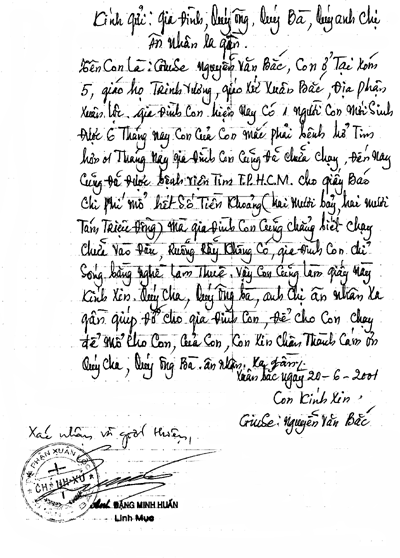 Kính gửi: gia Đình, Quý Ông, Quý Bà, Quý anh chị
Ân Nhân xa gần.
Tên Con Là: Giuse Nguyễn Văn Bắc, Con ở Tại xóm
5, giáo họ Trinh Vương, giáo xứ Xuân Bắc, Địa phận
Xuân Lộc. gia Đình Con hiện Nay Có 1 người Con Mới Sinh
Được 6 Tháng Nay Con Của Con Mắc phải bệnh hở Tim
hơn 01 Tháng Nay gia Đình Con Cũng Đã chữa chạy, Đến Nay
Cũng Đã Được bệnh viện Tim T.P.H.C.M. cho giấy Báo
Chi phí mổ hết Số Tiền Khoảng (hai Mươi bảy, hai mươi
Tám Triệu Đồng) Mà gia Đình Con Cũng chẳng biết chạy
chữa Vào Đâu, Ruộng Rẫy Không Có, gia Đình Con chỉ
Sống bằng Nghề Làm Thuê. Vậy Con Cũng làm giấy Này
Kính Xin. Quý Cha, Quý Ông bà, anh chị ân Nhân Xa
gần giúp Đỡ cho gia Đình Con, Để cho Con chạy
để Mổ cho Con, Của Con, Con Xin Chân Thành Cám ơn
Quý cha, Quý Ông Bà. ân Nhân. Xa gần.
Xuân bắc ngày 20-6-2001
Con Kính Xin,
Giuse: Nguyễn Văn Bắc
Xác nhận và giới thiệu,
PHẬN XUÂN LỘC
CHÁNH XỨ
ĐẶNG MINH HUẤN
Linh Mục